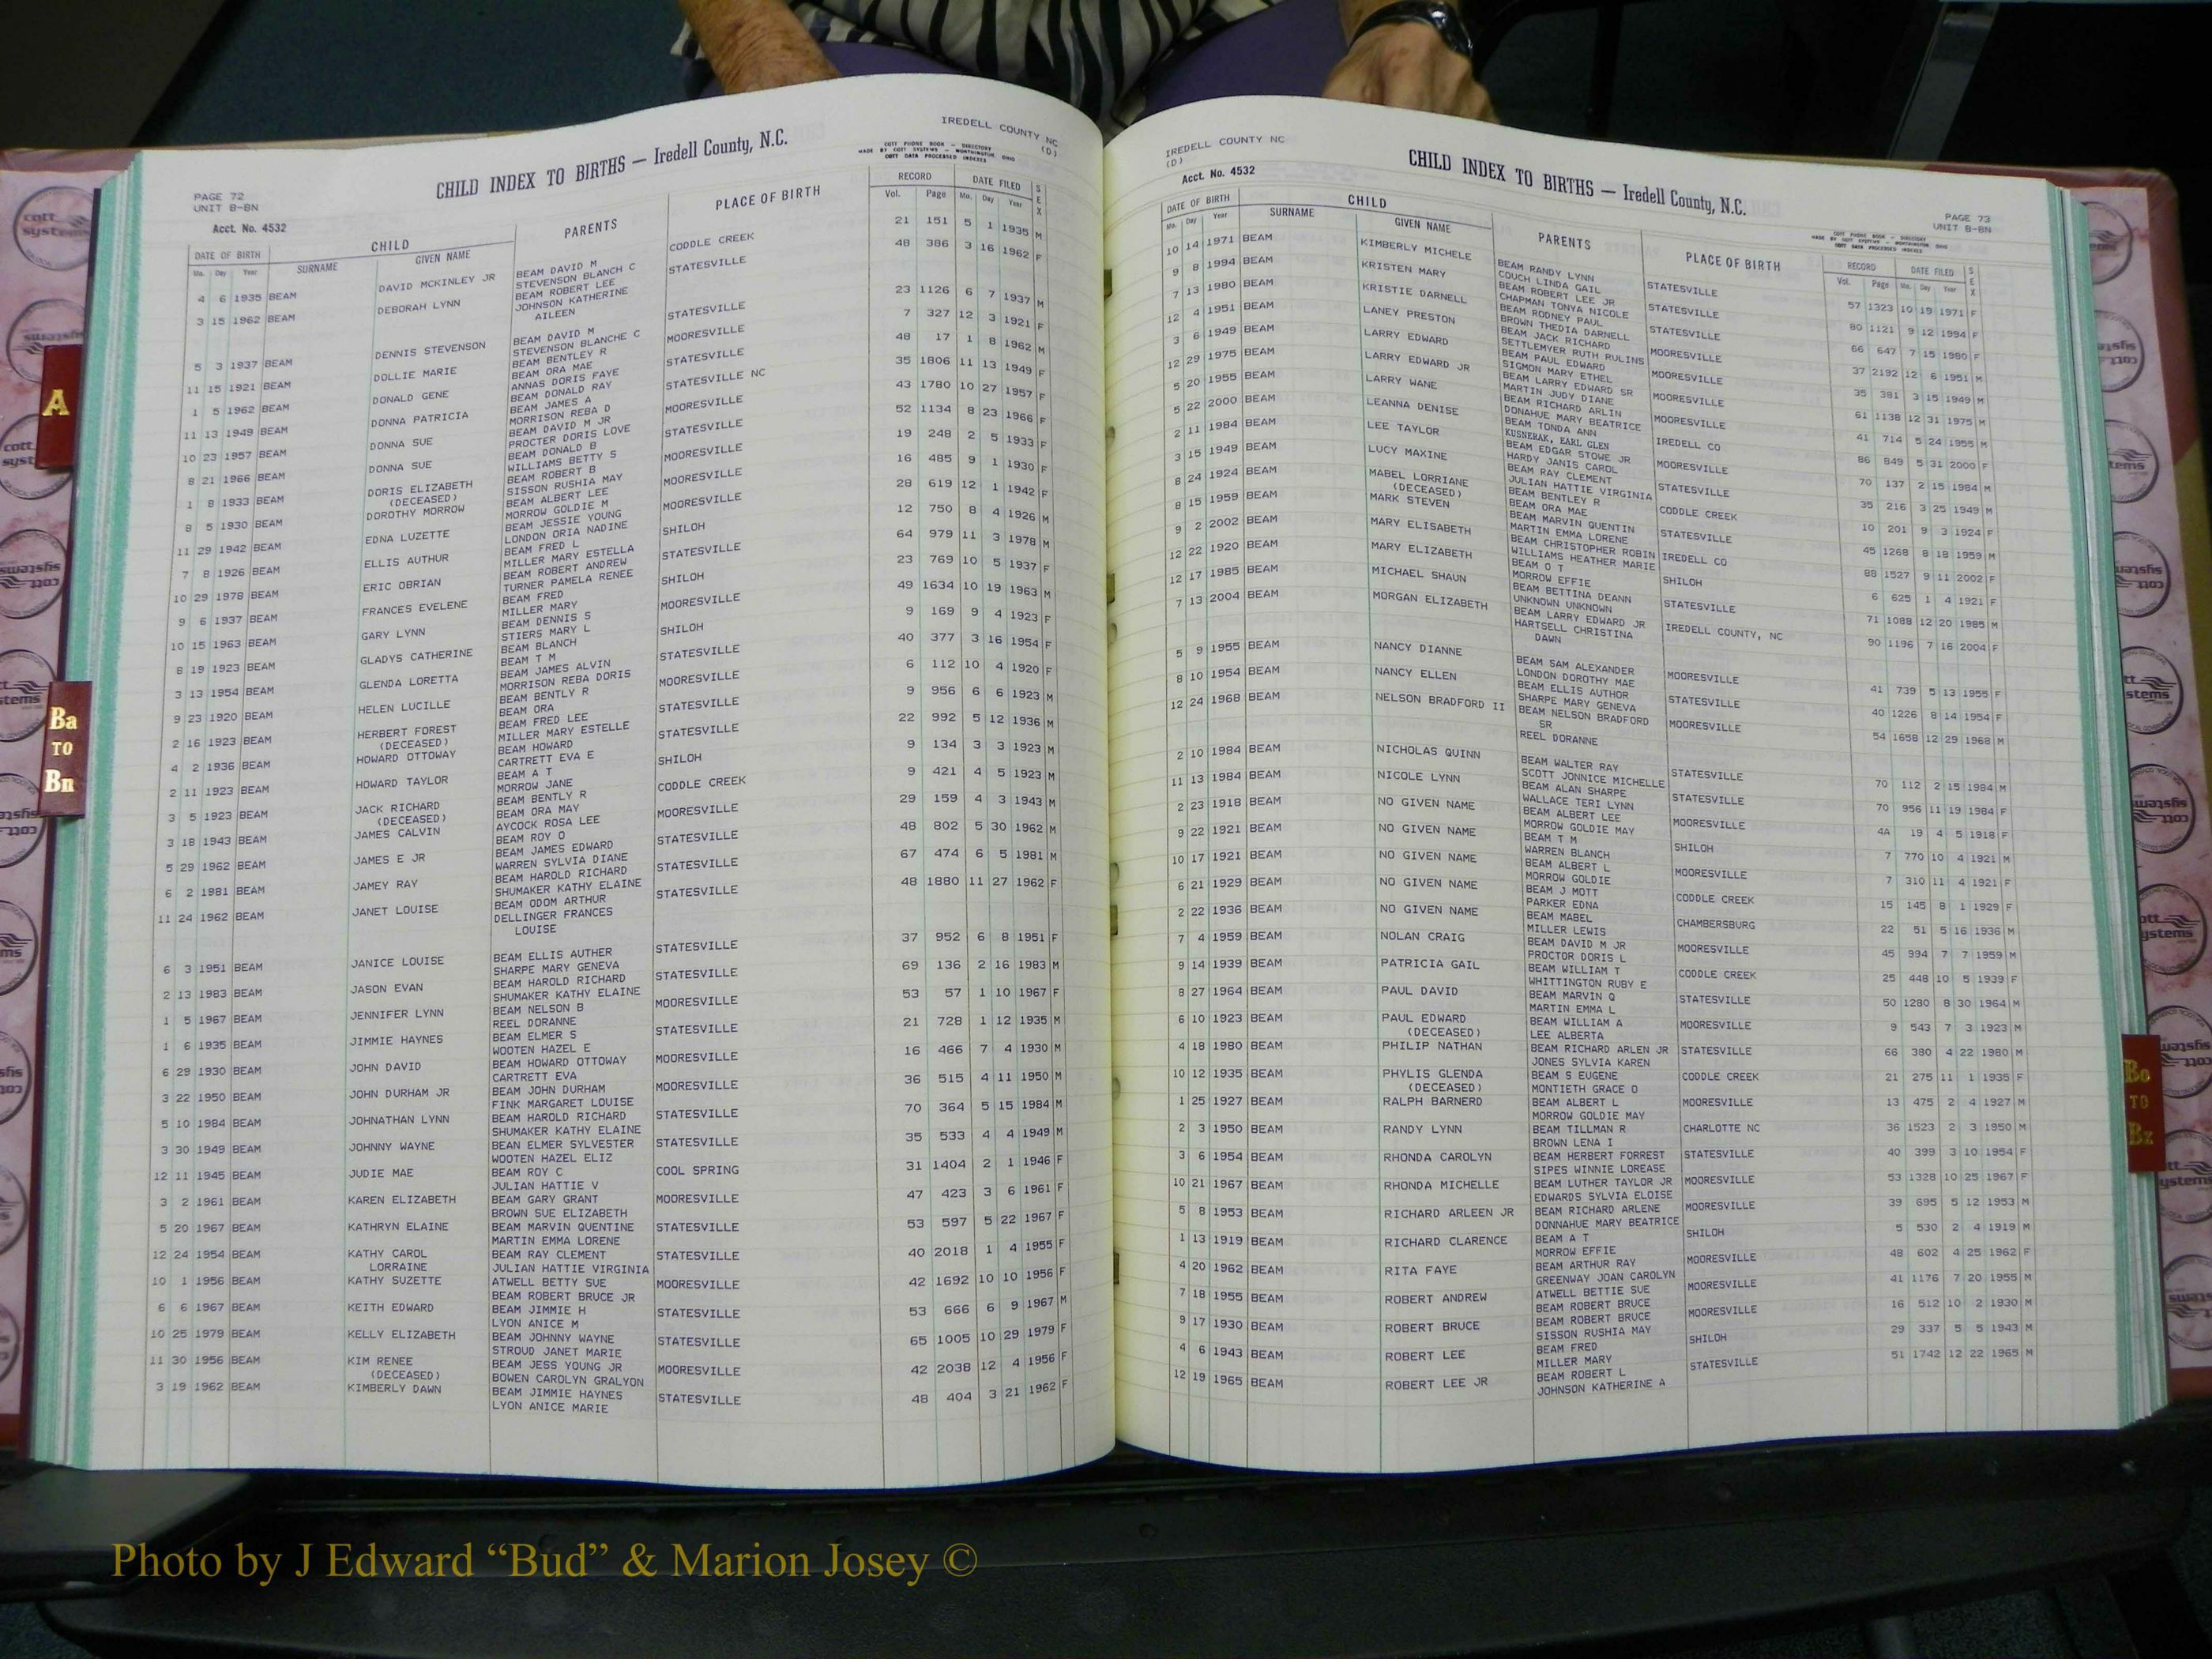 IREDELL COUNTY NC
(D)
CHILD INDEX TO BIRTHS — Iredell County, N.C.
COTT PHONE BOOK — DIRECTORY
MADE BY COTT SYSTEMS — WORTHINGTON, OHIO
COTT DATA PROCESSED INDEXES
PAGE 72
UNIT B-BN
Acct. No. 4532
DATE OF BIRTH CHILD PARENTS PLACE OF BIRTH RECORD DATE FILED SEX
Mo. Day Year SURNAME GIVEN NAME Vol. Page Mo. Day Year
4 6 1935 BEAM DAVID MCKINLEY JR BEAM DAVID M CODDLE CREEK 21 151 5 1 1935 M
STEVENSON BLANCH C
3 15 1962 BEAM DEBORAH LYNN BEAM ROBERT LEE STATESVILLE 48 386 3 16 1962 F
JOHNSON KATHERINE
AILEEN
5 3 1937 BEAM DENNIS STEVENSON BEAM DAVID M STATESVILLE 23 1126 6 7 1937 M
STEVENSON BLANCHE C
11 15 1921 BEAM DOLLIE MARIE BEAM BENTLEY R MOORESVILLE 7 327 12 3 1921 F
BEAM ORA MAE
1 5 1962 BEAM DONALD GENE ANNAS DORIS FAYE STATESVILLE 48 17 1 8 1962 M
BEAM DONALD RAY
11 13 1949 BEAM DONNA PATRICIA BEAM JAMES A STATESVILLE NC 35 1806 11 13 1949 F
MORRISON REBA D
10 23 1957 BEAM DONNA SUE BEAM DAVID M JR MOORESVILLE 43 1780 10 27 1957 F
PROCTER DORIS LOVE
8 21 1966 BEAM DONNA SUE BEAM DONALD B STATESVILLE 52 1134 8 23 1966 F
WILLIAMS BETTY S
1 8 1933 BEAM DORIS ELIZABETH BEAM ROBERT B MOORESVILLE 19 248 2 5 1933 F
(DECEASED) SISSON RUSHIA MAY
8 5 1930 BEAM DOROTHY MORROW BEAM ALBERT LEE MOORESVILLE 16 485 9 1 1930 F
MORROW GOLDIE M
11 29 1942 BEAM EDNA LUZETTE BEAM JESSIE YOUNG MOORESVILLE 28 619 12 1 1942 F
LONDON ORIA NADINE
7 8 1926 BEAM ELLIS AUTHUR BEAM FRED L SHILOH 12 750 8 4 1926 M
MILLER MARY ESTELLA
10 29 1978 BEAM ERIC OBRIAN BEAM ROBERT ANDREW STATESVILLE 64 979 11 3 1978 M
TURNER PAMELA RENEE
9 6 1937 BEAM FRANCES EVELENE BEAM FRED SHILOH 23 769 10 5 1937 F
MILLER MARY
10 15 1963 BEAM GARY LYNN BEAM DENNIS S MOORESVILLE 49 1634 10 19 1963 M
STIERS MARY L
8 19 1923 BEAM GLADYS CATHERINE BEAM BLANCH SHILOH 9 169 9 4 1923 F
BEAM T M
3 13 1954 BEAM GLENDA LORETTA BEAM JAMES ALVIN STATESVILLE 40 377 3 16 1954 F
MORRISON REBA DORIS
9 23 1920 BEAM HELEN LUCILLE BEAM BENTLY R MOORESVILLE 6 112 10 4 1920 F
BEAM ORA
2 16 1923 BEAM HERBERT FOREST BEAM FRED LEE STATESVILLE 9 956 6 6 1923 M
(DECEASED) MILLER MARY ESTELLE
4 2 1936 BEAM HOWARD OTTOWAY BEAM HOWARD STATESVILLE 22 992 5 12 1936 M
CARTRETT EVA E
2 11 1923 BEAM HOWARD TAYLOR BEAM A T SHILOH 9 134 3 3 1923 M
MORROW JANE
3 5 1923 BEAM JACK RICHARD BEAM BENTLY R CODDLE CREEK 9 421 4 5 1923 M
(DECEASED) BEAM ORA MAY
3 18 1943 BEAM JAMES CALVIN AYCOCK ROSA LEE MOORESVILLE 29 159 4 3 1943 M
BEAM ROY O
5 29 1962 BEAM JAMES E JR BEAM JAMES EDWARD STATESVILLE 48 802 5 30 1962 M
WARREN SYLVIA DIANE
6 2 1981 BEAM JAMEY RAY BEAM HAROLD RICHARD STATESVILLE 67 474 6 5 1981 M
SHUMAKER KATHY ELAINE
11 24 1962 BEAM JANET LOUISE BEAM ODOM ARTHUR STATESVILLE 48 1880 11 27 1962 F
DELLINGER FRANCES
LOUISE
6 3 1951 BEAM JANICE LOUISE BEAM ELLIS AUTHER STATESVILLE 37 952 6 8 1951 F
SHARPE MARY GENEVA
2 13 1983 BEAM JASON EVAN BEAM HAROLD RICHARD STATESVILLE 69 136 2 16 1983 M
SHUMAKER KATHY ELAINE
1 5 1967 BEAM JENNIFER LYNN BEAM NELSON B MOORESVILLE 53 57 1 10 1967 F
REEL DORANNE
1 6 1935 BEAM JIMMIE HAYNES BEAM ELMER S STATESVILLE 21 728 1 12 1935 M
WOOTEN HAZEL E
6 29 1930 BEAM JOHN DAVID BEAM HOWARD OTTOWAY MOORESVILLE 16 466 7 4 1930 M
CARTRETT EVA
3 22 1950 BEAM JOHN DURHAM JR BEAM JOHN DURHAM MOORESVILLE 36 515 4 11 1950 M
FINK MARGARET LOUISE
5 10 1984 BEAM JOHNATHAN LYNN BEAM HAROLD RICHARD STATESVILLE 70 364 5 15 1984 M
SHUMAKER KATHY ELAINE
3 30 1949 BEAM JOHNNY WAYNE BEAN ELMER SYLVESTER STATESVILLE 35 533 4 4 1949 M
WOOTEN HAZEL ELIZ
12 11 1945 BEAM JUDIE MAE BEAM ROY C COOL SPRING 31 1404 2 1 1946 F
JULIAN HATTIE V
3 2 1961 BEAM KAREN ELIZABETH BEAM GARY GRANT MOORESVILLE 47 423 3 6 1961 F
BROWN SUE ELIZABETH
5 20 1967 BEAM KATHRYN ELAINE BEAM MARVIN QUENTINE STATESVILLE 53 597 5 22 1967 F
MARTIN EMMA LORENE
12 24 1954 BEAM KATHY CAROL BEAM RAY CLEMENT STATESVILLE 40 2018 1 4 1955 F
LORRAINE JULIAN HATTIE VIRGINIA
10 1 1956 BEAM KATHY SUZETTE ATWELL BETTY SUE MOORESVILLE 42 1692 10 10 1956 F
BEAM ROBERT BRUCE JR
6 6 1967 BEAM KEITH EDWARD BEAM JIMMIE H STATESVILLE 53 666 6 9 1967 M
LYON ANICE M
10 25 1979 BEAM KELLY ELIZABETH BEAM JOHNNY WAYNE STATESVILLE 65 1005 10 29 1979 F
STROUD JANET MARIE
11 30 1956 BEAM KIM RENEE BEAM JESS YOUNG JR MOORESVILLE 42 2038 12 4 1956 F
(DECEASED) BOWEN CAROLYN GRALYON
3 19 1962 BEAM KIMBERLY DAWN BEAM JIMMIE HAYNES STATESVILLE 48 404 3 21 1962 F
LYON ANICE MARIE
IREDELL COUNTY NC
(D)
Acct. No. 4532
CHILD INDEX TO BIRTHS — Iredell County, N.C.
PAGE 73
UNIT B-BN
COTT PHONE BOOK — DIRECTORY
MADE BY COTT SYSTEMS — WORTHINGTON, OHIO
COTT DATA PROCESSED INDEXES
DATE OF BIRTH CHILD PARENTS PLACE OF BIRTH RECORD DATE FILED SEX
Mo. Day Year SURNAME GIVEN NAME Vol. Page Mo. Day Year
10 14 1971 BEAM KIMBERLY MICHELE BEAM RANDY LYNN STATESVILLE 57 1323 10 19 1971 F
COUCH LINDA GAIL
9 8 1994 BEAM KRISTEN MARY BEAM ROBERT LEE JR STATESVILLE 80 1121 9 12 1994 F
CHAPMAN TONYA NICOLE
7 13 1980 BEAM KRISTIE DARNELL BEAM RODNEY PAUL MOORESVILLE 66 647 7 15 1980 F
BROWN THEDIA DARNELL
12 4 1951 BEAM LANEY PRESTON BEAM JACK RICHARD MOORESVILLE 37 2192 12 6 1951 M
SETTLEMYER RUTH RULINS
3 6 1949 BEAM LARRY EDWARD BEAM PAUL EDWARD MOORESVILLE 35 381 3 15 1949 M
SIGMON MARY ETHEL
12 29 1975 BEAM LARRY EDWARD JR BEAM LARRY EDWARD SR MOORESVILLE 61 1138 12 31 1975 M
MARTIN JUDY DIANE
5 20 1955 BEAM LARRY WANE BEAM RICHARD ARLIN IREDELL CO 41 714 5 24 1955 M
DONAHUE MARY BEATRICE
5 22 2000 BEAM LEANNA DENISE BEAM TONDA ANN MOORESVILLE 86 849 5 31 2000 F
KUSNERAK, EARL GLEN
2 11 1984 BEAM LEE TAYLOR BEAM EDGAR STOWE JR STATESVILLE 70 137 2 15 1984 M
HARDY JANIS CAROL
3 15 1949 BEAM LUCY MAXINE BEAM RAY CLEMENT CODDLE CREEK 35 216 3 25 1949 M
JULIAN HATTIE VIRGINIA
8 24 1924 BEAM MABEL LORRIANE BEAM BENTLEY R STATESVILLE 10 201 9 3 1924 F
(DECEASED) BEAM ORA MAE
8 15 1959 BEAM MARK STEVEN BEAM MARVIN QUENTIN IREDELL CO 45 1268 8 18 1959 M
MARTIN EMMA LORENE
9 2 2002 BEAM MARY ELISABETH BEAM CHRISTOPHER ROBIN IREDELL CO 88 1527 9 11 2002 F
WILLIAMS HEATHER MARIE
12 22 1920 BEAM MARY ELIZABETH BEAM O T SHILOH 6 625 1 4 1921 F
MORROW EFFIE
12 17 1985 BEAM MICHAEL SHAUN BEAM BETTINA DEANN STATESVILLE 71 1088 12 20 1985 M
UNKNOWN UNKNOWN
7 13 2004 BEAM MORGAN ELIZABETH BEAM LARRY EDWARD JR IREDELL COUNTY, NC 90 1196 7 16 2004 F
HARTSELL CHRISTINA
DAWN
5 9 1955 BEAM NANCY DIANNE BEAM SAM ALEXANDER MOORESVILLE 41 739 5 13 1955 F
LONDON DOROTHY MAE
8 10 1954 BEAM NANCY ELLEN BEAM ELLIS AUTHOR STATESVILLE 40 1226 8 14 1954 F
SHARPE MARY GENEVA
12 24 1968 BEAM NELSON BRADFORD II BEAM NELSON BRADFORD MOORESVILLE 54 1658 12 29 1968 M
SR
REEL DORANNE
2 10 1984 BEAM NICHOLAS QUINN BEAM WALTER RAY STATESVILLE 70 112 2 15 1984 M
SCOTT JONNICE MICHELLE
11 13 1984 BEAM NICOLE LYNN BEAM ALAN SHARPE STATESVILLE 70 956 11 19 1984 F
WALLACE TERI LYNN
2 23 1918 BEAM NO GIVEN NAME BEAM ALBERT LEE MOORESVILLE 4A 19 4 5 1918 F
MORROW GOLDIE MAY
9 22 1921 BEAM NO GIVEN NAME BEAM T M SHILOH 7 770 10 4 1921 M
WARREN BLANCH
10 17 1921 BEAM NO GIVEN NAME BEAM ALBERT L MOORESVILLE 7 310 11 4 1921 F
MORROW GOLDIE
6 21 1929 BEAM NO GIVEN NAME BEAM J MOTT CODDLE CREEK 15 145 8 1 1929 F
PARKER EDNA
2 22 1936 BEAM NO GIVEN NAME BEAM MABEL CHAMBERSBURG 22 51 5 16 1936 M
MILLER LEWIS
7 4 1959 BEAM NOLAN CRAIG BEAM DAVID M JR MOORESVILLE 45 994 7 7 1959 M
PROCTOR DORIS L
9 14 1939 BEAM PATRICIA GAIL BEAM WILLIAM T CODDLE CREEK 25 448 10 5 1939 F
WHITTINGTON RUBY E
8 27 1964 BEAM PAUL DAVID BEAM MARVIN Q STATESVILLE 50 1280 8 30 1964 M
MARTIN EMMA L
6 10 1923 BEAM PAUL EDWARD BEAM WILLIAM A MOORESVILLE 9 543 7 3 1923 M
(DECEASED) LEE ALBERTA
4 18 1980 BEAM PHILIP NATHAN BEAM RICHARD ARLEN JR STATESVILLE 66 380 4 22 1980 M
JONES SYLVIA KAREN
10 12 1935 BEAM PHYLIS GLENDA BEAM S EUGENE CODDLE CREEK 21 275 11 1 1935 F
(DECEASED) MONTIETH GRACE O
1 25 1927 BEAM RALPH BARNERD BEAM ALBERT L MOORESVILLE 13 475 2 4 1927 M
MORROW GOLDIE MAY
2 3 1950 BEAM RANDY LYNN BEAM TILLMAN R CHARLOTTE NC 36 1523 2 3 1950 M
BROWN LENA I
3 6 1954 BEAM RHONDA CAROLYN BEAM HERBERT FORREST STATESVILLE 40 399 3 10 1954 F
SIPES WINNIE LOREASE
10 21 1967 BEAM RHONDA MICHELLE BEAM LUTHER TAYLOR JR MOORESVILLE 53 1328 10 25 1967 F
EDWARDS SYLVIA ELOISE
5 8 1953 BEAM RICHARD ARLEEN JR BEAM RICHARD ARLENE MOORESVILLE 39 695 5 12 1953 M
DONNAHUE MARY BEATRICE
1 13 1919 BEAM RICHARD CLARENCE BEAM A T SHILOH 5 530 2 4 1919 M
MORROW EFFIE
4 20 1962 BEAM RITA FAYE BEAM ARTHUR RAY MOORESVILLE 48 602 4 25 1962 F
GREENWAY JOAN CAROLYN
7 18 1955 BEAM ROBERT ANDREW ATWELL BETTIE SUE MOORESVILLE 41 1176 7 20 1955 M
BEAM ROBERT BRUCE
9 17 1930 BEAM ROBERT BRUCE BEAM ROBERT BRUCE MOORESVILLE 16 512 10 2 1930 M
SISSON RUSHIA MAY
4 6 1943 BEAM ROBERT LEE BEAM FRED SHILOH 29 337 5 5 1943 M
MILLER MARY
12 19 1965 BEAM ROBERT LEE JR BEAM ROBERT L STATESVILLE 51 1742 12 22 1965 M
JOHNSON KATHERINE A
A
Ba
TO
Bn
Bo
TO
Bz
cott
systems
Photo by J Edward “Bud” & Marion Josey ©